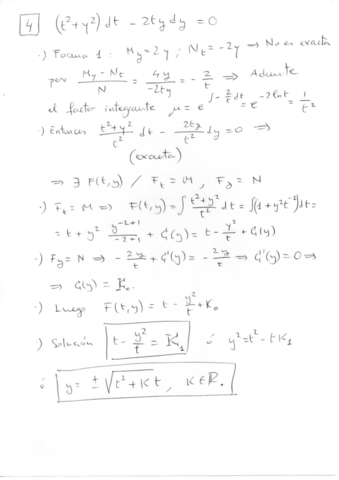 4 (t²+y²) dt - 2ty dy = 0
·) Forma 1: My = 2y ; Nt = -2y ⇒ No es exacta
pero (My - Nt)/N = 4y/(-2ty) = -2/t ⇒ Admite
el factor integrante μ = e^(∫-2/t dt) = e^(-2lnt) = 1/t²
·) Entonces (t²+y²)/t² dt - 2ty/t² dy = 0 ⇒
(exacta)
⇒ ∃ F(t,y) / Ft = M, Fy = N
·) Ft = M ⇒ F(t,y) = ∫ (t²+y²)/t² dt = ∫(1+y²t⁻²)dt =
= t + y² y^(-2+1)/(-2+1) + G(y) = t - y²/t + G(y)
·) Fy = N ⇒ -2y/t + G'(y) = -2y/t ⇒ G'(y) = 0 ⇒
⇒ G(y) = K₀.
·) Luego F(t,y) = t - y²/t + K₀
·) Solución t - y²/t = K₁ ó y² = t² - tK₁
ó y = ± √(t² + K t), K ∈ R.